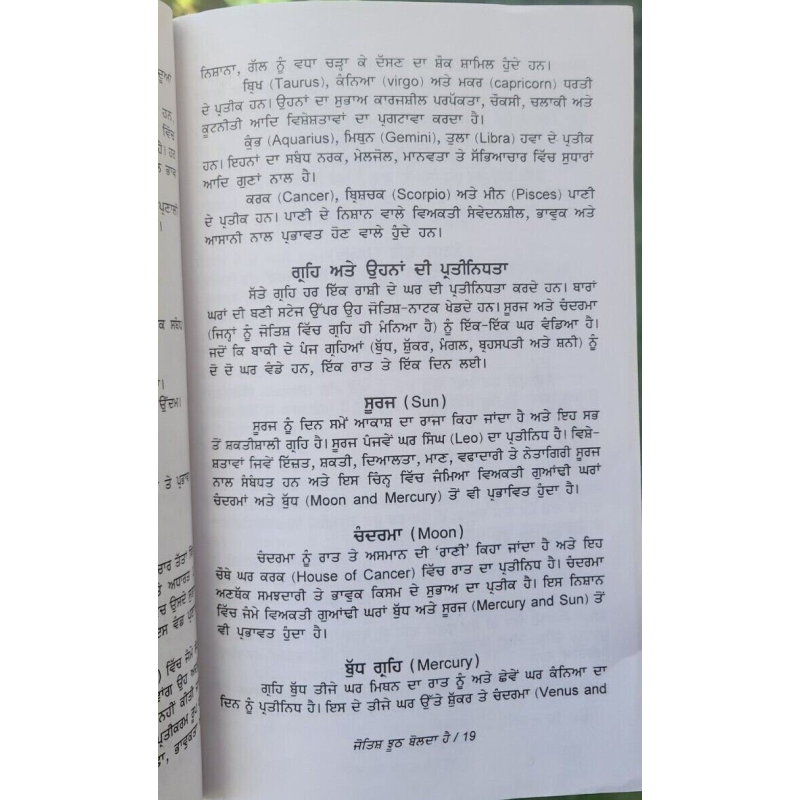 ਨਿਸ਼ਾਨਾ, ਗੱਲ ਨੂੰ ਵਧਾ ਚੜ੍ਹਾ ਕੇ ਦੱਸਣ ਦਾ ਸ਼ੌਕ ਸ਼ਾਮਿਲ ਹੁੰਦੇ ਹਨ।
ਬ੍ਰਿਖ (Taurus), ਕੰਨਿਆ (virgo) ਅਤੇ ਮਕਰ (capricorn) ਧਰਤੀ
ਦੇ ਪ੍ਰਤੀਕ ਹਨ। ਉਹਨਾਂ ਦਾ ਸੁਭਾਅ ਕਾਰਜਸ਼ੀਲ ਪਰਪੱਕਤਾ, ਚੌਕਸੀ, ਚਲਾਕੀ ਅਤੇ
ਕੂਟਨੀਤੀ ਆਦਿ ਵਿਸ਼ੇਸ਼ਤਾਵਾਂ ਦਾ ਪ੍ਰਗਟਾਵਾ ਕਰਦਾ ਹੈ।
ਕੁੰਭ (Aquarius), ਮਿਥੁਨ (Gemini), ਤੁਲਾ (Libra) ਹਵਾ ਦੇ ਪ੍ਰਤੀਕ
ਹਨ। ਇਹਨਾਂ ਦਾ ਸਬੰਧ ਨਰਕ, ਮੇਲਜੋਲ, ਮਾਨਵਤਾ ਤੇ ਸੱਭਿਆਚਾਰ ਵਿੱਚ ਸੁਧਾਰਾਂ
ਆਦਿ ਗੁਣਾਂ ਨਾਲ ਹੈ।
ਕਰਕ (Cancer), ਬ੍ਰਿਸ਼ਚਕ (Scorpio) ਅਤੇ ਮੀਨ (Pisces) ਪਾਣੀ
ਦੇ ਪ੍ਰਤੀਕ ਹਨ। ਪਾਣੀ ਦੇ ਨਿਸ਼ਾਨ ਵਾਲੇ ਵਿਅਕਤੀ ਸੰਵੇਦਨਸ਼ੀਲ, ਭਾਵੁਕ ਅਤੇ
ਆਸਾਨੀ ਨਾਲ ਪ੍ਰਭਾਵਤ ਹੋਣ ਵਾਲੇ ਹੁੰਦੇ ਹਨ।
ਗ੍ਰਹਿ ਅਤੇ ਉਹਨਾਂ ਦੀ ਪ੍ਰਤੀਨਿਧਤਾ
ਸੱਤੇ ਗ੍ਰਹਿ ਹਰ ਇੱਕ ਰਾਸ਼ੀ ਦੇ ਘਰ ਦੀ ਪ੍ਰਤੀਨਿਧਤਾ ਕਰਦੇ ਹਨ। ਬਾਰਾਂ
ਘਰਾਂ ਦੀ ਬਣੀ ਸਟੇਜ ਉੱਪਰ ਉਹ ਜੋਤਿਸ਼-ਨਾਟਕ ਖੇਡਦੇ ਹਨ। ਸੂਰਜ ਅਤੇ ਚੰਦਰਮਾ
(ਜਿਨ੍ਹਾਂ ਨੂੰ ਜੋਤਿਸ਼ ਵਿੱਚ ਗ੍ਰਹਿ ਹੀ ਮੰਨਿਆ ਹੈ) ਨੂੰ ਇੱਕ-ਇੱਕ ਘਰ ਵੰਡਿਆ ਹੈ।
ਜਦੋਂ ਕਿ ਬਾਕੀ ਦੇ ਪੰਜ ਗ੍ਰਹਿਆਂ (ਬੁੱਧ, ਸ਼ੁੱਕਰ, ਮੰਗਲ, ਬ੍ਰਹਸਪਤੀ ਅਤੇ ਸ਼ਨੀ) ਨੂੰ
ਦੋ ਦੋ ਘਰ ਵੰਡੇ ਹਨ, ਇੱਕ ਰਾਤ ਤੇ ਇੱਕ ਦਿਨ ਲਈ।
ਸੂਰਜ (Sun)
ਸੂਰਜ ਨੂੰ ਦਿਨ ਸਮੇਂ ਆਕਾਸ਼ ਦਾ ਰਾਜਾ ਕਿਹਾ ਜਾਂਦਾ ਹੈ ਅਤੇ ਇਹ ਸਭ
ਤੋਂ ਸ਼ਕਤੀਸ਼ਾਲੀ ਗ੍ਰਹਿ ਹੈ। ਸੂਰਜ ਪੰਜਵੇਂ ਘਰ ਸਿੰਘ (Leo) ਦਾ ਪ੍ਰਤੀਨਿਧ ਹੈ। ਵਿਸ਼ੇ-
ਸ਼ਤਾਵਾਂ ਜਿਵੇਂ ਇੱਜ਼ਤ, ਸ਼ਕਤੀ, ਦਿਆਲਤਾ, ਮਾਣ, ਵਫਾਦਾਰੀ ਤੇ ਨੇਤਾਗਿਰੀ ਸੂਰਜ
ਨਾਲ ਸੰਬੰਧਤ ਹਨ ਅਤੇ ਇਸ ਚਿੰਨ੍ਹ ਵਿੱਚ ਜੰਮਿਆ ਵਿਅਕਤੀ ਗੁਆਂਢੀ ਘਰਾਂ
ਚੰਦਰਮਾਂ ਅਤੇ ਬੁੱਧ (Moon and Mercury) ਤੋਂ ਵੀ ਪ੍ਰਭਾਵਿਤ ਹੁੰਦਾ ਹੈ।
ਚੰਦਰਮਾ (Moon)
ਚੰਦਰਮਾ ਨੂੰ ਰਾਤ ਤੇ ਅਸਮਾਨ ਦੀ ‘ਰਾਣੀ’ ਕਿਹਾ ਜਾਂਦਾ ਹੈ ਅਤੇ ਇਹ
ਚੌਥੇ ਘਰ ਕਰਕ (House of Cancer) ਵਿੱਚ ਰਾਤ ਦਾ ਪ੍ਰਤੀਨਿਧ ਹੈ। ਚੰਦਰਮਾ
ਅਣਥੱਕ ਸਮਝਦਾਰੀ ਤੇ ਭਾਵੁਕ ਕਿਸਮ ਦੇ ਸੁਭਾਅ ਦਾ ਪ੍ਰਤੀਕ ਹੈ। ਇਸ ਨਿਸ਼ਾਨ
ਵਿੱਚ ਜੰਮੇ ਵਿਅਕਤੀ ਗੁਆਂਢੀ ਘਰਾਂ ਬੁੱਧ ਅਤੇ ਸੂਰਜ (Mercury and Sun) ਤੋਂ
ਵੀ ਪ੍ਰਭਾਵਤ ਹੁੰਦਾ ਹੈ।
ਬੁੱਧ ਗ੍ਰਹਿ (Mercury)
ਗ੍ਰਹਿ ਬੁੱਧ ਤੀਜੇ ਘਰ ਮਿਥਨ ਦਾ ਰਾਤ ਨੂੰ ਅਤੇ ਛੇਵੇਂ ਘਰ ਕੰਨਿਆ ਦਾ
ਦਿਨ ਨੂੰ ਪ੍ਰਤੀਨਿਧ ਹੈ। ਇਸ ਦੇ ਤੀਜੇ ਘਰ ਉੱਤੇ ਸ਼ੁੱਕਰ ਤੇ ਚੰਦਰਮਾ (Venus and
ਜੋਤਿਸ਼ ਝੂਠ ਬੋਲਦਾ ਹੈ / 19